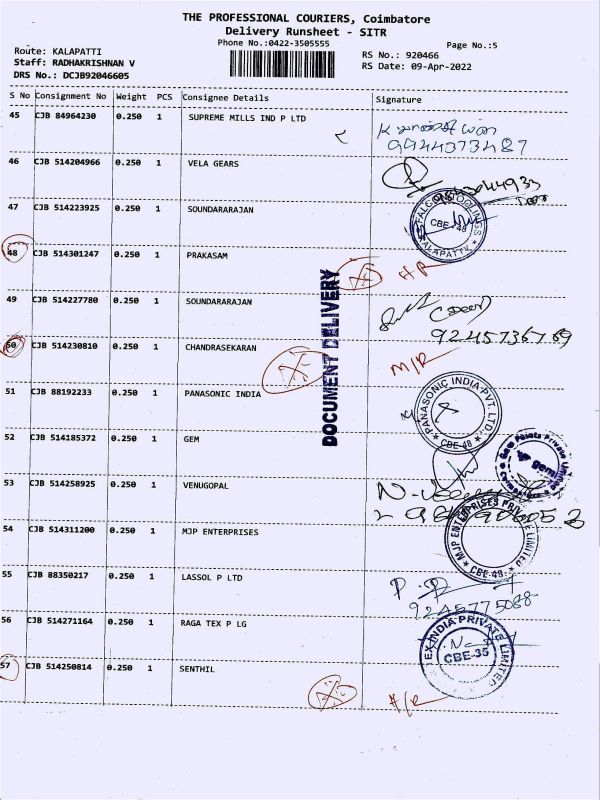 THE PROFESSIONAL COURIERS, Coimbatore
Delivery Runsheet - SITR
Phone No.:0422-3505555
Page No.:5
Route: KALAPATTI
Staff: RADHAKRISHNAN V
DRS No.: DCJB92046605
RS No.: 920466
RS Date: 09-Apr-2022
S No Consignment No Weight PCS Consignee Details Signature
45 CJB 84964230 0.250 1 SUPREME MILLS IND P LTD
9944373487
46 CJB 514204966 0.250 1 VELA GEARS
47 CJB 514223925 0.250 1 SOUNDARARAJAN
FALCON TOOLINGS
CBE-48
KALAPATTY
48 CJB 514301247 0.250 1 PRAKASAM
DOCUMENT DELIVERY
49 CJB 514227780 0.250 1 SOUNDARARAJAN
9245736769
50 CJB 514230810 0.250 1 CHANDRASEKARAN
M/R
51 CJB 88192233 0.250 1 PANASONIC INDIA
PANASONIC INDIA PVT. LTD.
CBE-48
52 CJB 514185372 0.250 1 GEM
53 CJB 514258925 0.250 1 VENUGOPAL
54 CJB 514311200 0.250 1 MJP ENTERPRISES
MJP ENTERPRISES PRIVATE LIMITED
CBE-48
55 CJB 88350217 0.250 1 LASSOL P LTD
9245775088
56 CJB 514271164 0.250 1 RAGA TEX P LG
TEX INDIA PRIVATE LIMITED
CBE-35
57 CJB 514250814 0.250 1 SENTHIL